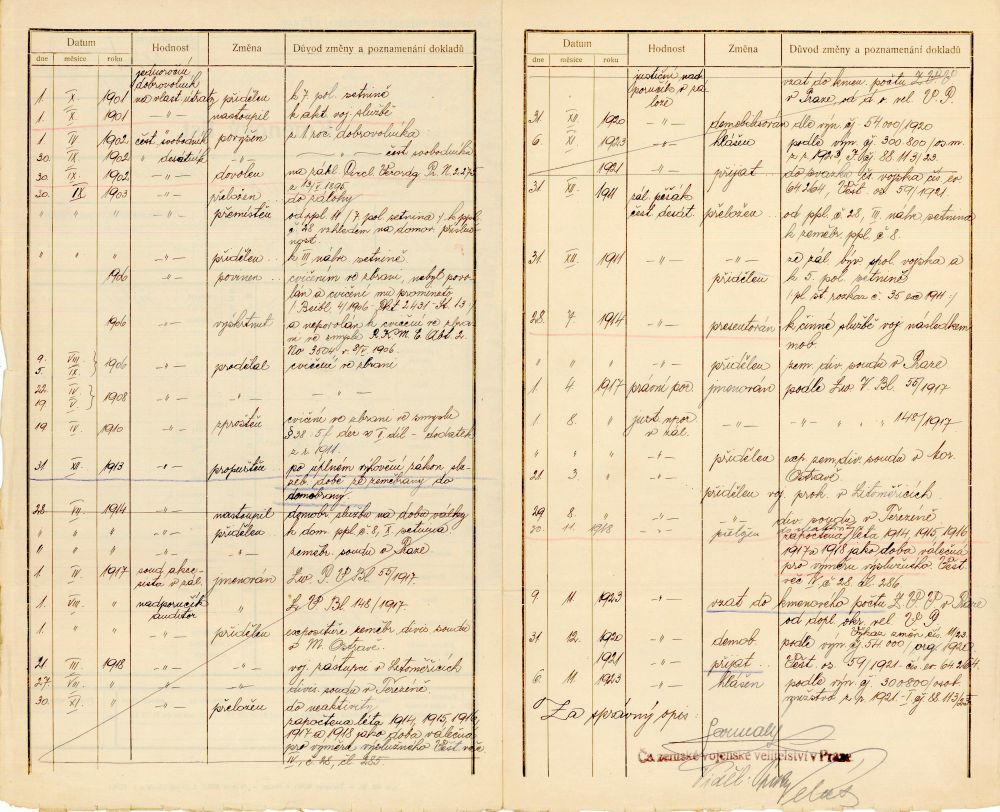 Datum Hodnost Změna Důvod změny a poznamenání dokladů
dne měsíce roku
jednoroční
dobrovolník
1. X. 1901 na vlast. útraty přidělen k 7. pol. setnině
1. X. 1901 -"- nastoupil k akt. voj. službě
1 IV 1902. čest. svobodník povýšen z 1 roč. dobrovolníka
30. IX 1902 " desátník -"- " čest. svobodníka
30. IX. 1902 -"- dovolen na zákl.
30. IX 1903 -"- přeložen do zálohy
" " " -"- přemístěn od ppl. 11 / 7 pol. setnina / k ppl.
č. 28 vzhledem na domov. přísluš-
nost.
" " " -"- přidělen k III náhr. setnině.
1906 -"- povinen cvičením ve zbrani, nebyl povo-
lán a cvičení mu prominuto
1906 -"- výškrtnut a nepovolán k cvičení ve zbra
ni ve smyslu
No 3504 v. 1906.
9. VIII. 1906 -"- prodělal cvičení ve zbrani
5. IX.
22. IV 1908 -"- -"- - " -
19 V.
19 IV. 1910 -"- zproštěn cvičení ve zbrani ve smyslu
I. díl - dodatek
z r. 1911.
31. XII. 1913 -"- propuštěn po úplném vykonání zákon. slu-
žeb. doby ze zeměbrany do
domobrany.
28. VII. 1914 -"- nastoupil domobr. službu na dobu války
" " " -"- přidělen k dom. ppl. č. 8, X setnina.
" " " -"- " zeměbr. soudu v Praze
1. IV. 1917 soud. akce-
sista v zál. jmenován 55/1917
1. VIII. " nadporučík
auditor " 148/1917
1. " " -"- přidělen expozituře zeměbr. divis. soudu
v M. Ostravě.
21. III. 1918 -"- " voj. zástupce v Litoměřicích
27. VIII. " -"- -"- divis. soudu v Terezíně.
30. XI. " -"- přeložen do neaktivity
započtena léta 1914, 1915, 1916,
1917 a 1918 jako doba válečná
pro výměru výslužného Věst. věc.
IV, č. 28, čl. 285
Datum Hodnost Změna Důvod změny a poznamenání dokladů
dne měsíce roku
justiční nad
poručík v zá-
loze vzat do kmen. počtu
v Praze, od d. o. vel. V. P.
31. XII. 1920 -"- demobilisován dle výn. čj. 54.000/1920
6. XI. 1923 -"- hlášen podle výn. čj. 300.800/os. m.
z r. 1923, 88.113/23.
1921 -"- přijat do svazku čs. vojska čís. ev.
64264, Věst. os. 59/1921.
31 XII. 1911 zál. pěšák
čest. desát. přeložen od ppl. č. 28, III. náhr. setnina
k zeměbr. ppl. č 8.
31. XII. 1911 -"- -"- ze zál. býv. spol. vojska a
přidělen k 5. pol. setnině
/ pl. st. rozkaz č. 35 ex 1911 /
28. 7. 1914 -"- presentován k činné službě voj. následkem
mob.
" " " -"- přidělen zem. div. soudu v Praze
1 4. 1917 právní poč. jmenován podle 55/1917
1 8. " just. npor.
v zál. -"- -"- " " 148/1917
" " " -"- přidělen exp. zem. div. soudu v Mor.
Ostravě
21. 3. " -"-
přidělen voj. prok. v Litoměřicích.
29 8. " -"- -"- div. soudu v Terezíně
30. 11 1918 -"- započtena léta 1914, 1915, 1916
1917 a 1918 jako doba válečná
pro výměru výslužného. Věst.
věc. IV. č 28. čl. 286.
9 11 1923 -"- vzat do kmenového počtu Z. V. V. v Praze
od dopl. okr. vel. V P
Výkaz změn čís. 11/23.
31. 12. 1920 -"- demob. podle výn. čj. 54.000/org/1920
1921 -"- přijat Věst. os. 59/1921. čís. ev. 64264.
6. 11 1923 -"- hlášen podle výn. čj. 300800/osob.
mužstvo z r. 1921 88.113/23
Za správný opis:
Čs. zemské vojenské velitelství v Praze